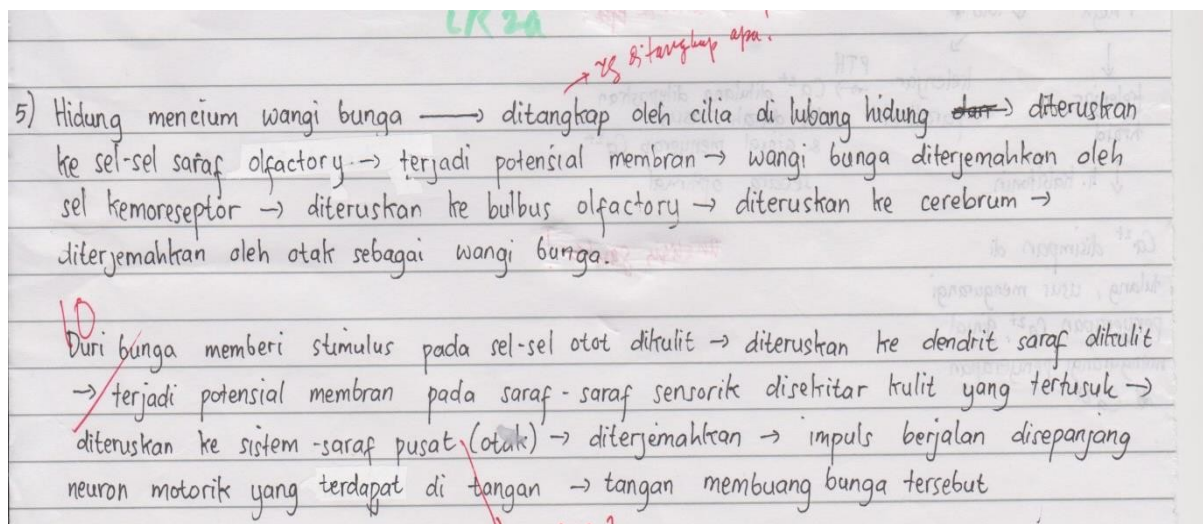 LK 2a
yg ditangkap apa?
5) Hidung mencium wangi bunga → ditangkap oleh cilia di lubang hidung → diteruskan
ke sel-sel saraf olfactory → terjadi potensial membran → wangi bunga diterjemahkan oleh
sel kemoreseptor → diteruskan ke bulbus olfactory → diteruskan ke cerebrum →
diterjemahkan oleh otak sebagai wangi bunga.
10
Duri bunga memberi stimulus pada sel-sel otot dikulit → diteruskan ke dendrit saraf dikulit
→ terjadi potensial membran pada saraf-saraf sensorik disekitar kulit yang tertusuk →
diteruskan ke sistem-saraf pusat (otak) → diterjemahkan → impuls berjalan disepanjang
neuron motorik yang terdapat di tangan → tangan membuang bunga tersebut